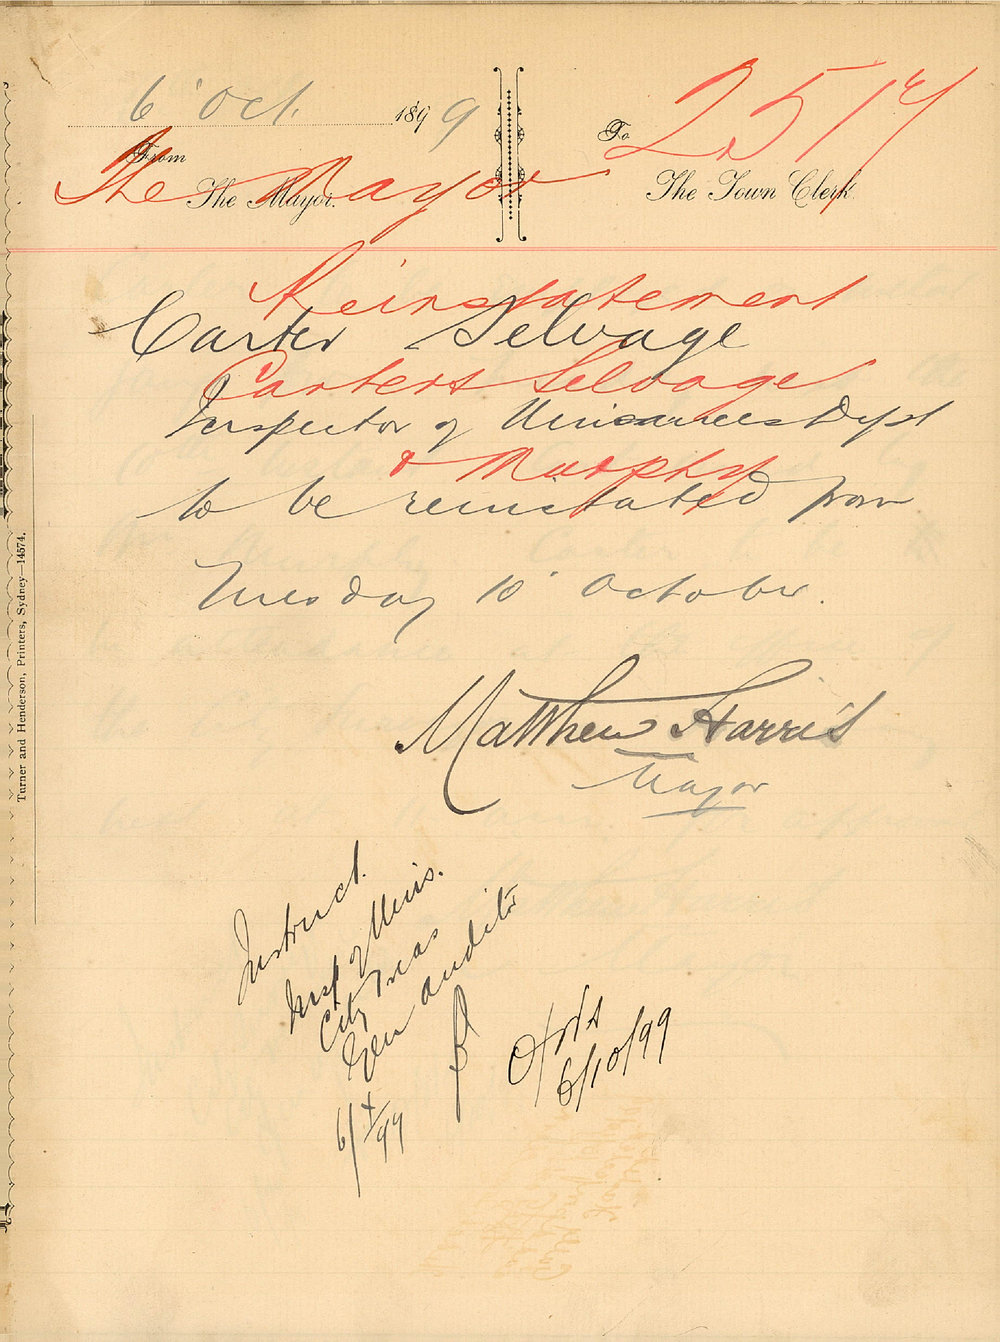 6 Oct. 1899
2517
From
To
The Mayor
The Mayor.
The Town Clerk
Reinstatement
Carter Selvage
Carters Selvage
Inspector of Nuisances Dept
& Murphy
to be reinstated from
Tuesday 10 October.
Matthew Harris
Mayor
Instruct.
Insp of Nuis.
City Treas
Gen auditor
6/X/99
6/10/99
Turner and Henderson, Printers, Sydney—14574.